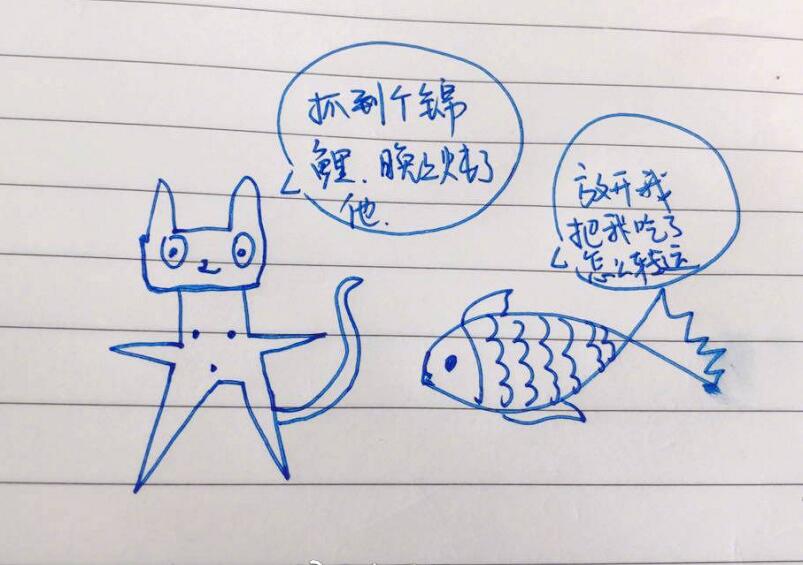 抓到个锦
鲤.晚上炖了
他.
放开我
把我吃了
怎么转运